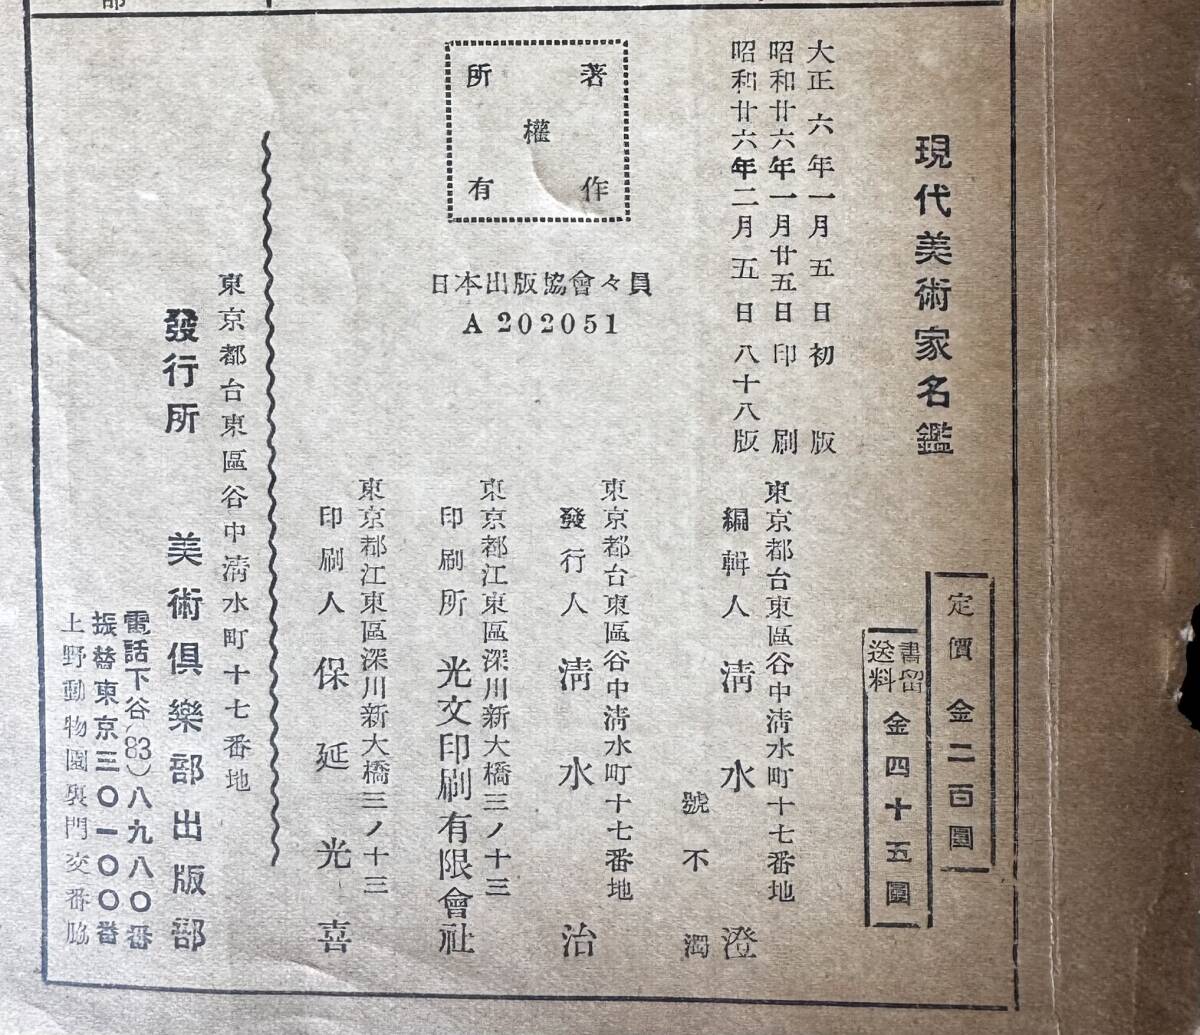 現代美術家名鑑
定價 金二百圓
書留送料 金四十五圓
大正六年一月五日初版
昭和廿六年一月廿五日印刷
昭和廿六年二月五日八十八版
東京都台東區谷中淸水町十七番地
編輯人 淸水澄
號不濁
著作權所有
日本出版協會々員
A 202051
東京都台東區谷中淸水町十七番地
發行人 淸水治
東京都江東區深川新大橋三ノ十三
印刷所 光文印刷有限會社
東京都江東區深川新大橋三ノ十三
印刷人 保延光喜
東京都台東區谷中淸水町十七番地
發行所 美術倶樂部出版部
電話下谷(83)八九八〇番
振替東京三〇一〇〇番
上野動物園裏門交番脇
部